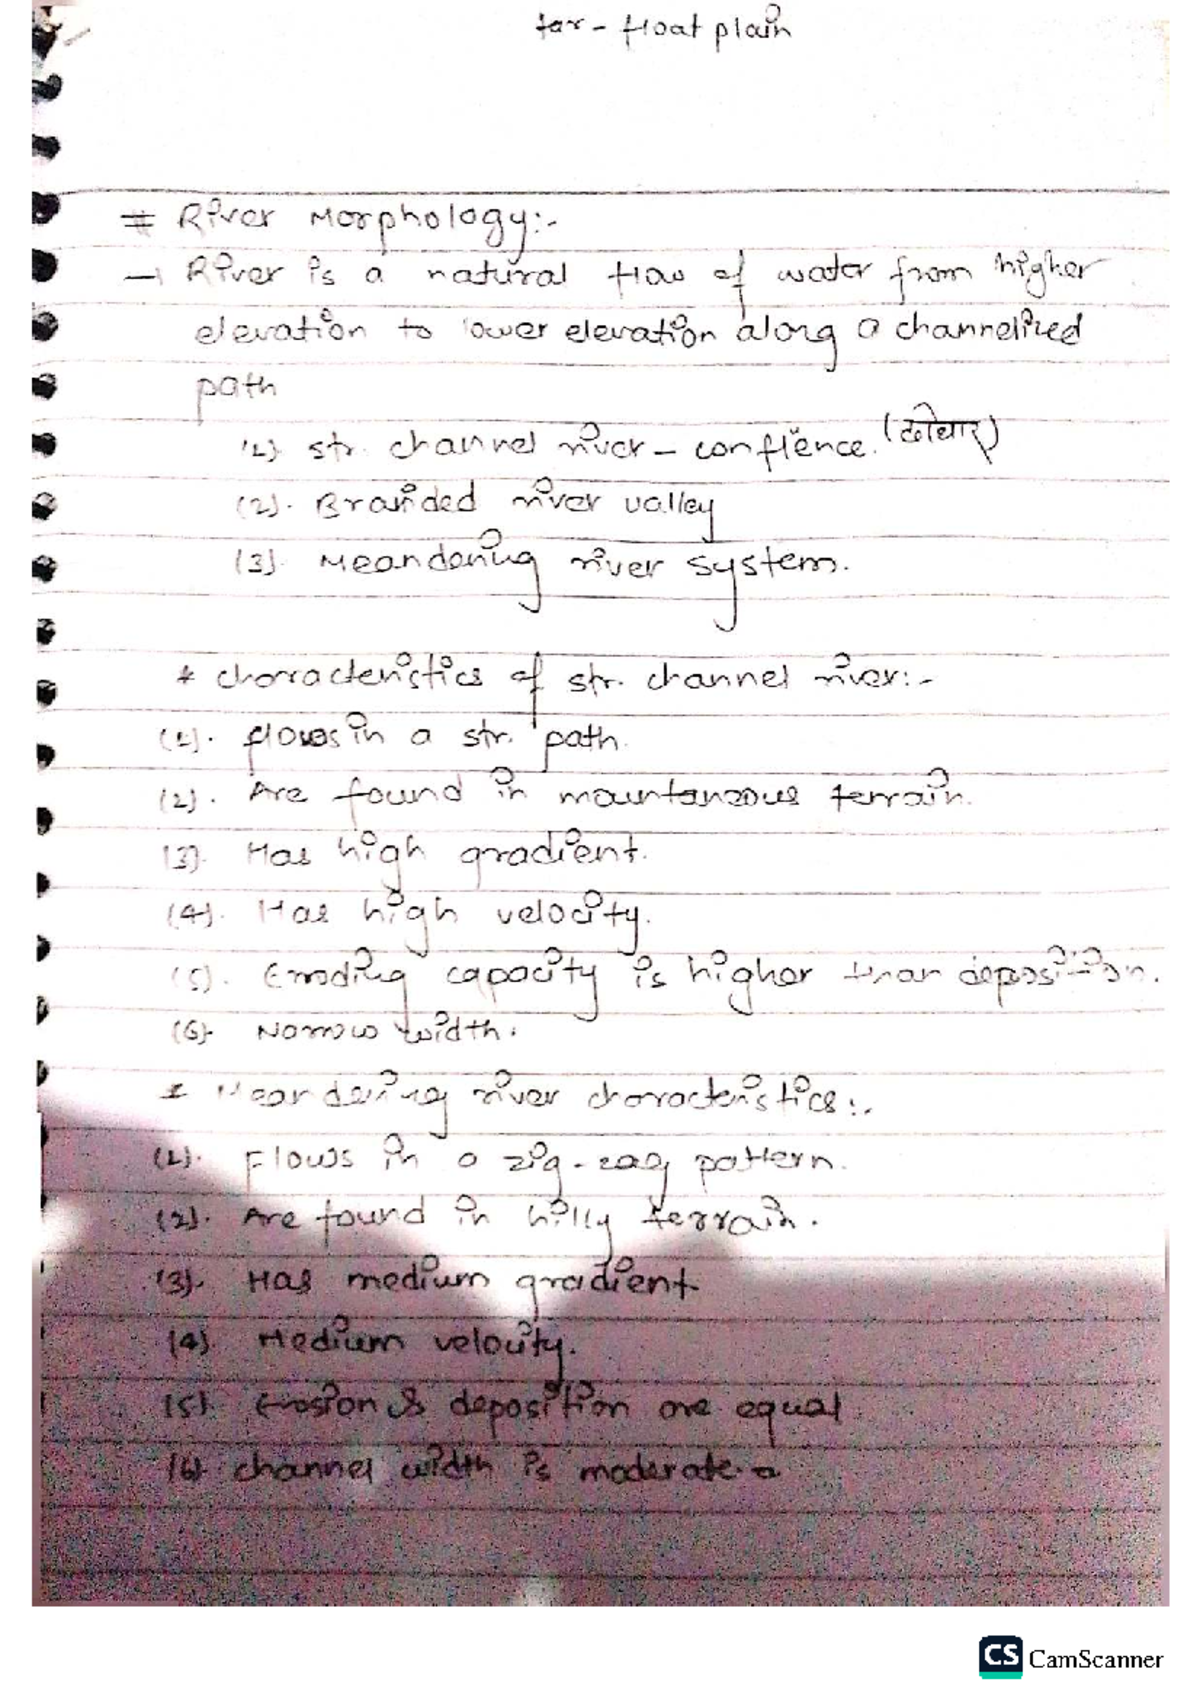 tar - float plain
# River Morphology:-
→ River is a natural flow of water from higher
elevation to lower elevation along a channelized
path
(1). str. channel river - confience. (दोधार)
(2). Braided river valley
(3). Meandering river system.
* characteristics of str. channel river:-
(1). flows in a str. path.
(2). Are found in mountaneous terrain.
(3). Has high gradient.
(4). Has high velocity.
(5). Eroding capacity is higher than deposition.
(6). Narrow width.
* Meandering river characteristics:-
(1). Flows in a zig-zag pattern.
(2). Are found in hilly terrain.
(3). Has medium gradient
(4). Medium velocity.
(5). Erosion & deposition are equal
(6) channel width is moderate.
CS CamScanner